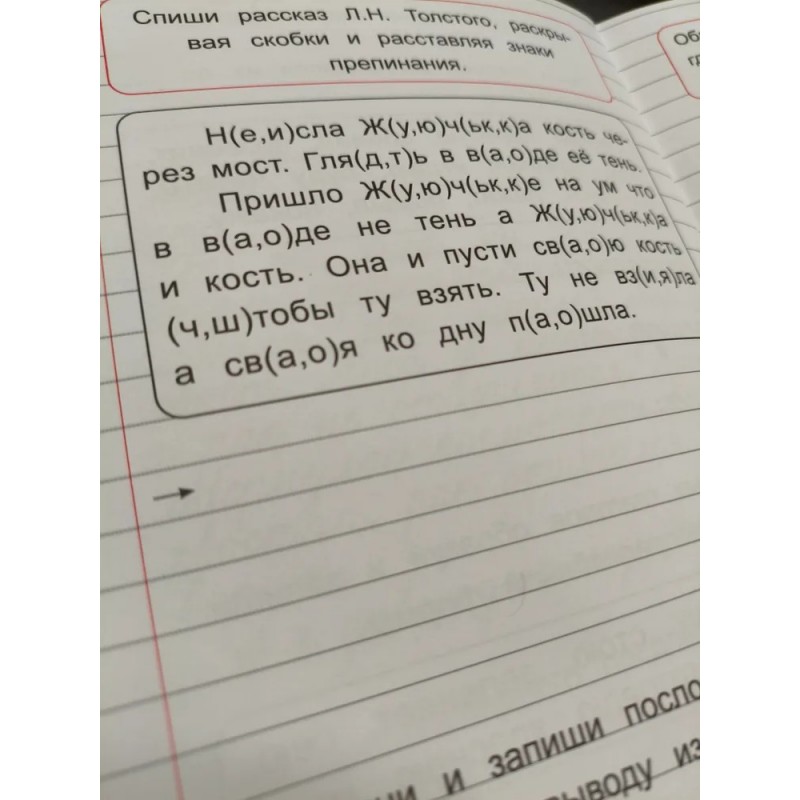 Спиши рассказ Л.Н. Толстого, раскры-
вая скобки и расставляя знаки
препинания.
Н(е,и)сла Ж(у,ю)ч(ьк,к)а кость че-
рез мост. Гля(д,т)ь в в(а,о)де её тень.
Пришло Ж(у,ю)ч(ьк,к)е на ум что
в в(а,о)де не тень а Ж(у,ю)ч(ьк,к)а
и кость. Она и пусти св(а,о)ю кость
(ч,ш)тобы ту взять. Ту не вз(и,я)ла
а св(а,о)я ко дну п(а,о)шла.
и запиши